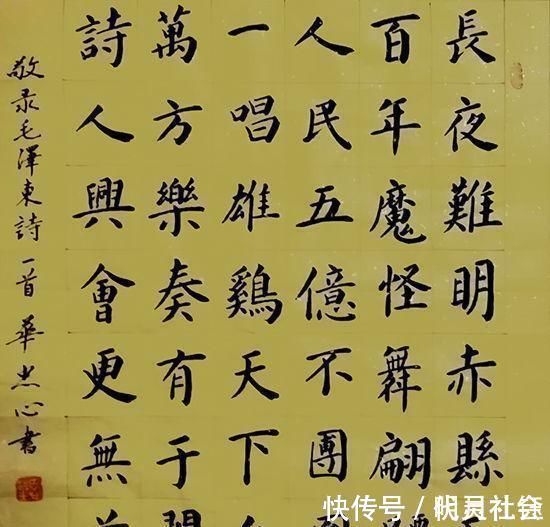 長夜難明赤縣
百年魔怪舞翩
人民五億不團
一唱雄鷄天下
萬方樂奏有于
詩人興會更無
敬录毛澤東詩一首 華忠心書
快传号／